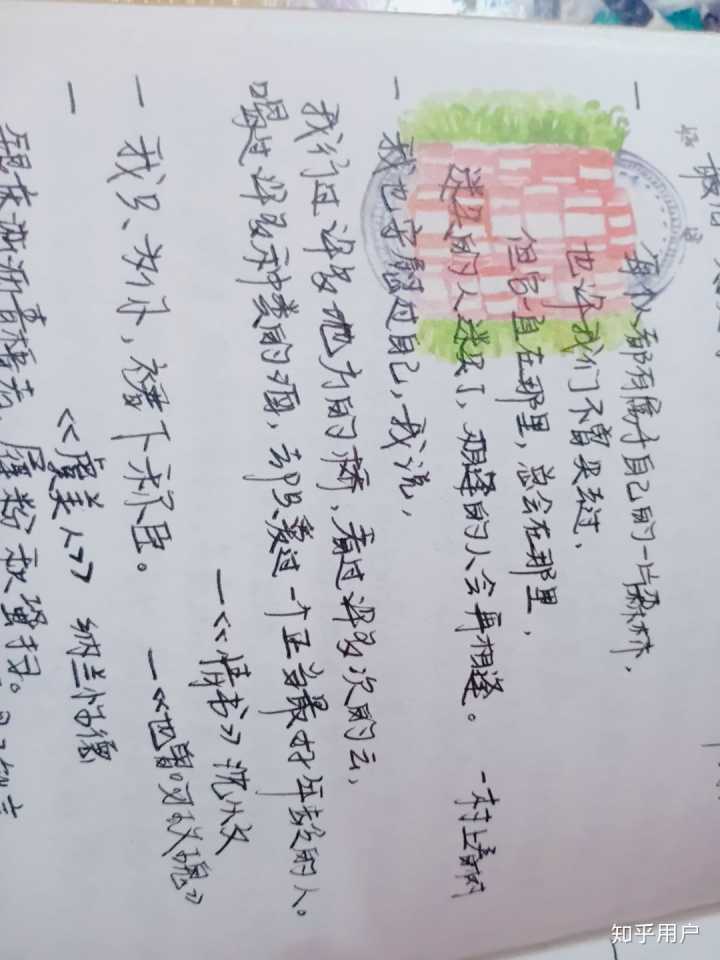 一 每个人都有属于自己的一片森林,
也许我们不曾去过,
但它一直在那里,总会在那里,
迷失的人迷失了,相逢的人会再相逢。 —村上春树
一 我也安慰过自己,我说,
我行过许多地方的桥,看过许多次的云,
喝过许多种类的酒,却只爱过一个正当最好年龄的人。
—《情书》沈从文
一 我只为你,裙下称臣。 —《也曾吻玫瑰》
《虞美人》 纳兰性德
一 银床淅沥青梧老,屧粉秋蛩扫。
知乎用户